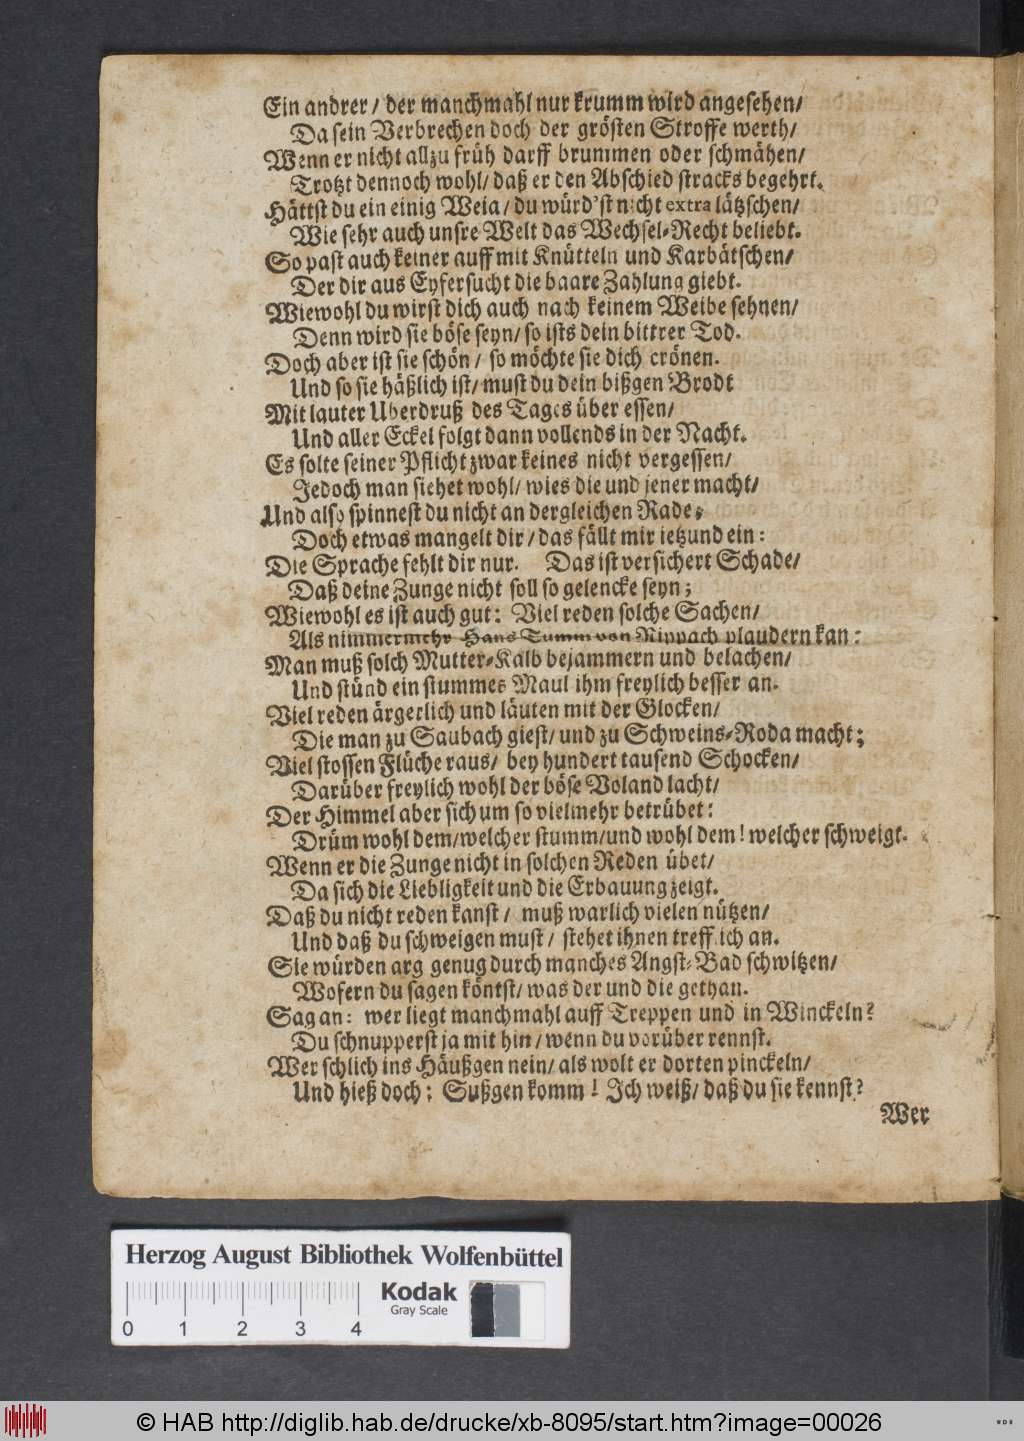 Ein andrer / der manchmahl nur krumm wird angesehen/
Da sein Verbrechen doch der grösten Stroffe werth/
Wenn er nicht allzu früh darff brummen oder schmähen/
Trotzt dennoch wohl/ daß er den Abschied stracks begehrt.
Hättst du ein einig Weia/ du würd'st nicht extra lätzschen/
Wie sehr auch unsre Welt das Wechsel-Recht beliebt.
So past auch keiner auff mit Knütteln und Karbätschen/
Der dir aus Eyfersucht die baare Zahlung giebt.
Wiewohl du wirst dich auch nach keinem Weibe sehnen/
Denn wird sie böse seyn/ so ists dein bittrer Tod.
Doch aber ist sie schön / so möchte sie dich crönen.
Und so sie häßlich ist/ must du dein bißgen Brodt
Mit lauter Uberdruß des Tages über essen/
Und aller Eckel folgt dann vollends in der Nacht.
Es solte seiner Pflicht zwar keines nicht vergessen/
Jedoch man siehet wohl/ wies die und jener macht/
Und also spinnest du nicht an dergleichen Rade;
Doch etwas mangelt dir / das fällt mir ietzund ein:
Die Sprache fehlt dir nur. Das ist versichert Schade/
Daß deine Zunge nicht soll so gelencke seyn;
Wiewohl es ist auch gut: Viel reden solche Sachen/
Als nimmermehr Hans Tumm von Rippach plaudern kan:
Man muß solch Mutter-Kalb bejammern und belachen/
Und stünd ein stummes Maul ihm freylich besser an.
Viel reden ärgerlich und läuten mit der Glocken/
Die man zu Saubach giest/ und zu Schweins-Roda macht;
Viel stossen Flüche raus/ bey hundert tausend Schocken/
Darüber freylich wohl der böse Voland lacht/
Der Himmel aber sich um so vielmehr betrübet:
Drüm wohl dem/welcher stumm/und wohl dem! welcher schweigt.
Wenn er die Zunge nicht in solchen Reden übet/
Da sich die Liebligkeit und die Erbauung zeigt.
Daß du nicht reden kanst / muß warlich vielen nützen/
Und daß du schweigen must / stehet ihnen trefflich an.
Sie würden arg genug durch manches Angst-Bad schwitzen/
Wofern du sagen köntst/ was der und die gethan.
Sag an: wer liegt manchmahl auff Treppen und in Winckeln?
Du schnupperst ja mit hin/ wenn du vorüber rennst.
Wer schlich ins Häußgen nein/ als wolt er dorten pinckeln/
Und hieß doch: Sußgen komm! Ich weiß/ daß du sie kennst?
Wer
Herzog August Bibliothek Wolfenbüttel
Kodak
Gray Scale
0 1 2 3 4
© HAB http://diglib.hab.de/drucke/xb-8095/start.htm?image=00026
WDB